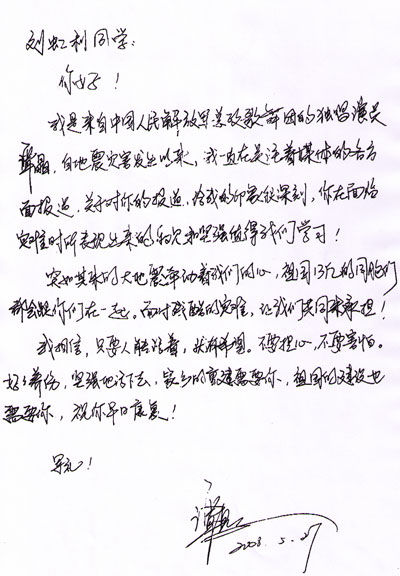 刘虹利同学：
你好！
我是来自中国人民解放军总政歌舞团的独唱演员
谭晶，自地震灾害发生以来，我一直在关注着媒体的各方
面报道，关于对你的报道，给我的印象很深刻，你在面临
灾难时所表现出来的和坚强值得我们学习！
突如其来的大地震牵动着我们的心，祖国13亿的同胞们
都会跟你们在一起。面对残酷的灾难，让我们共同来承担！
我相信，只要人能活着，就有希望。不要担心，不要害怕。
好好养伤，坚强地活下去，家乡的重建需要你，祖国的建设也
需要你，祝你早日康复！
导礼！
谭晶
2008.5.27